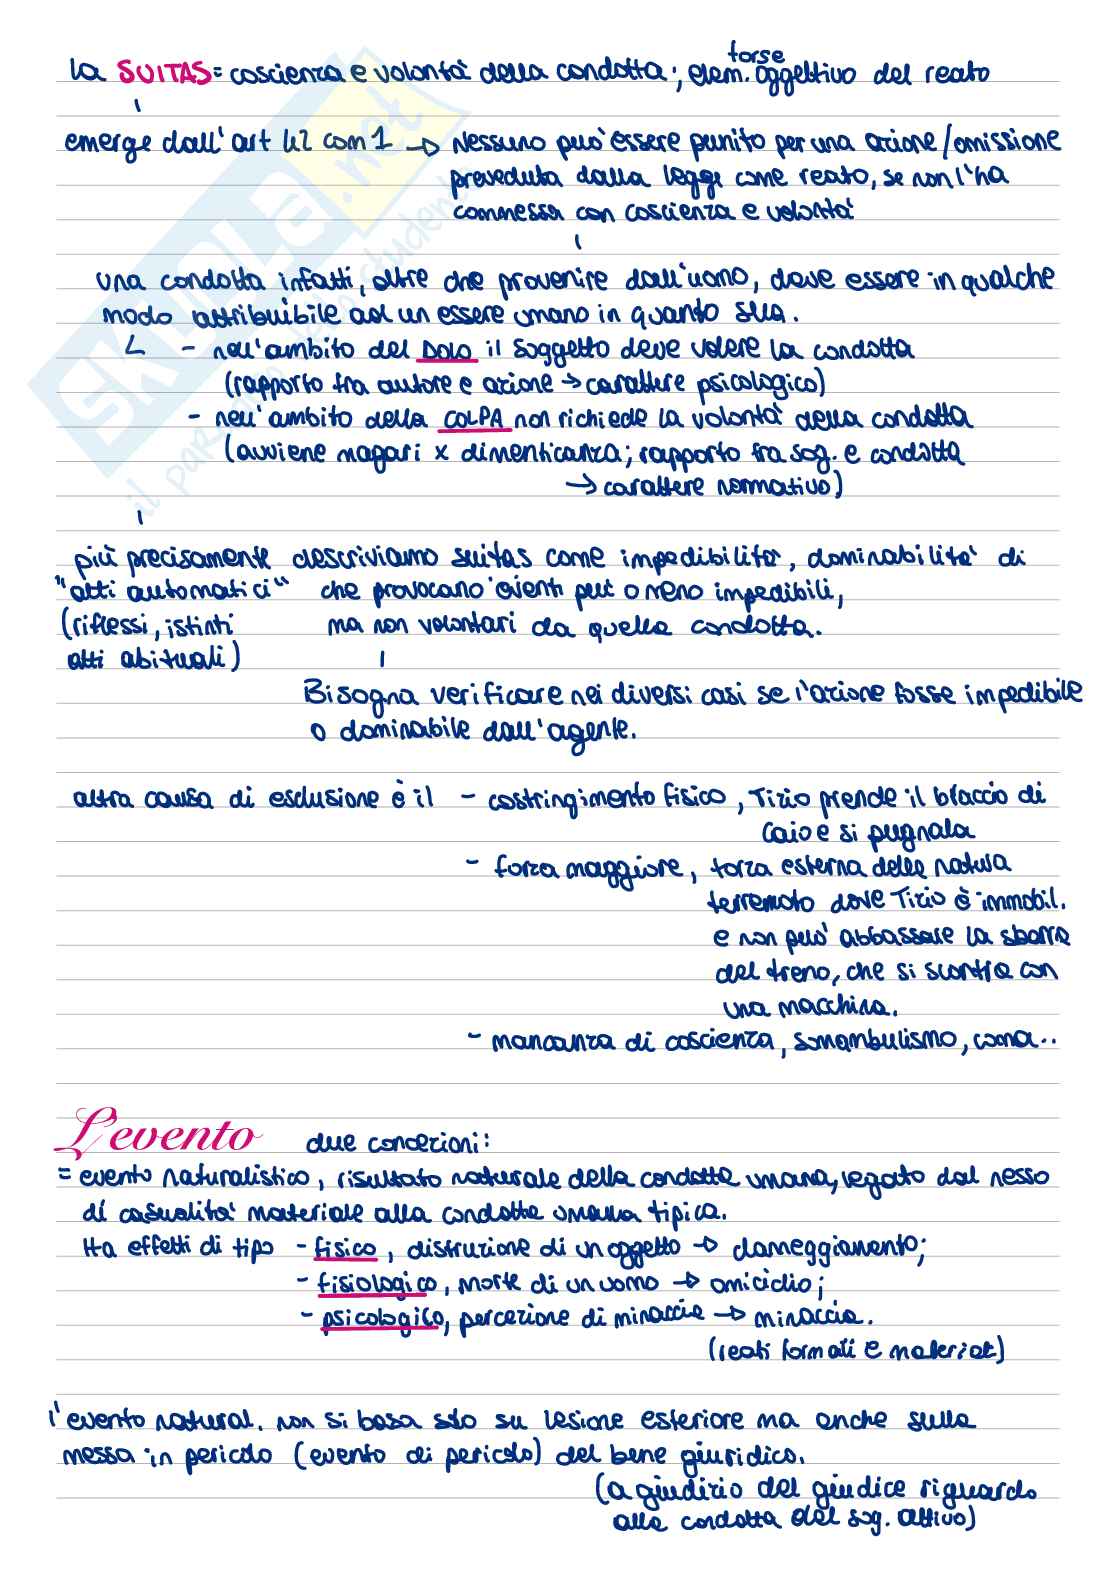 forse
la SUITAS = coscienza e volontà della condotta; elem. oggettivo del reato
emerge dall'art 42 com 1 → Nessuno può essere punito per una azione/omissione
preveduta dalla legge come reato, se non l'ha
commessa con coscienza e volontà
una condotta infatti, oltre che provenire dall'uomo, deve essere in qualche
modo attribuibile ad un essere umano in quanto sua.
- nell'ambito del DOLO il soggetto deve volere la condotta
(rapporto fra autore e azione → carattere psicologico)
- nell'ambito della COLPA non richiede la volontà della condotta
(avviene magari x dimenticanza; rapporto fra sog. e condotta
→ carattere normativo)
più precisamente descriviamo suitas come impedibilità, dominabilità di
"atti automatici" che provocano eventi più o meno impedibili,
(riflessi, istinti ma non volontari da quella condotta.
atti abituali)
Bisogna verificare nei diversi casi se l'azione fosse impedibile
o dominabile dall'agente.
altra causa di esclusione è il - costringimento fisico, Tizio prende il braccio di
Caio e si pugnala
- forza maggiore, forza esterna della natura
terremoto dove Tizio è immobil.
e non può abbassare la sbarra
del treno, che si scontra con
una macchina.
- mancanza di coscienza, sonnambulismo, coma..
L'evento due concezioni:
= evento naturalistico, risultato naturale della condotta umana, legato dal nesso
di casualità materiale alla condotta umana tipica.
Ha effetti di tipo - fisico, distruzione di un oggetto → danneggiamento;
- fisiologico, morte di un uomo → omicidio;
- psicologico, percezione di minaccia → minaccia.
(reati formali e materiali)
l'evento natural. non si basa solo su lesione esteriore ma anche sulla
messa in pericolo (evento di pericolo) del bene giuridico.
(a giudizio del giudice riguardo
alla condotta del sog. attivo)
SKUOLA.net